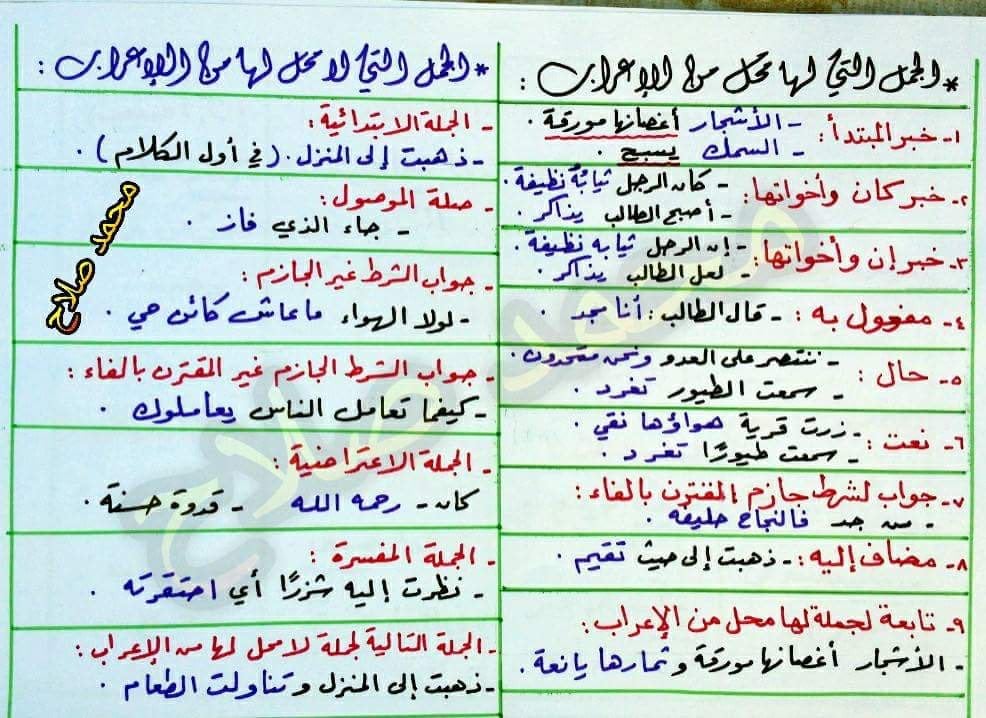 * الجمل التي لها محل من الإعراب :
١- خبر المبتدأ : - الأشجار أغصانها مورقة .
- السمك يسبح .
٢- خبر كان وأخواتها : - كان الرجل ثيابُهُ نظيفة .
- أصبح الطالب يذاكر .
٣- خبر إن وأخواتها : - إن الرجل ثيابه نظيفة .
- لعل الطالب يذاكر .
٤- مفعول به : - قال الطالب : أنا مجد .
٥- حال : - ننتصر على العدو ونحن متحدون .
- سمعت الطيور تغرد .
٦- نعت : - زرت قرية هواؤها نقي .
- سمعت طيورًا تغرد .
٧- جواب لشرط جازم المقترن بالفاء :
- من جد فالنجاح حليفه .
٨- مضاف إليه : - ذهبت إلى حيث تقيم .
٩- تابعة لجملة لها محل من الإعراب :
- الأشجار أغصانها مورقة وثمارها يانعة .
* الجمل التي لا محل لها من الإعراب :
- الجملة الابتدائية :
- ذهبت إلى المنزل . ( في أول الكلام ) .
- صلة الموصول :
- جاء الذي فاز .
- جواب الشرط غير الجازم :
- لولا الهواء ما عاش كائن حي .
- جواب الشرط الجازم غير المقترن بالفاء :
- كيفما تعامل الناس يعاملوك .
- الجملة الاعتراضية :
كان - رحمه الله - قدوة حسنة .
- الجملة المفسرة :
- نظرت إليه شزرًا أي احتقرته .
- الجملة التالية لجملة لا محل لها من الإعراب :
- ذهبت إلى المنزل وتناولت الطعام .
محمد صلاح
محمد صلاح